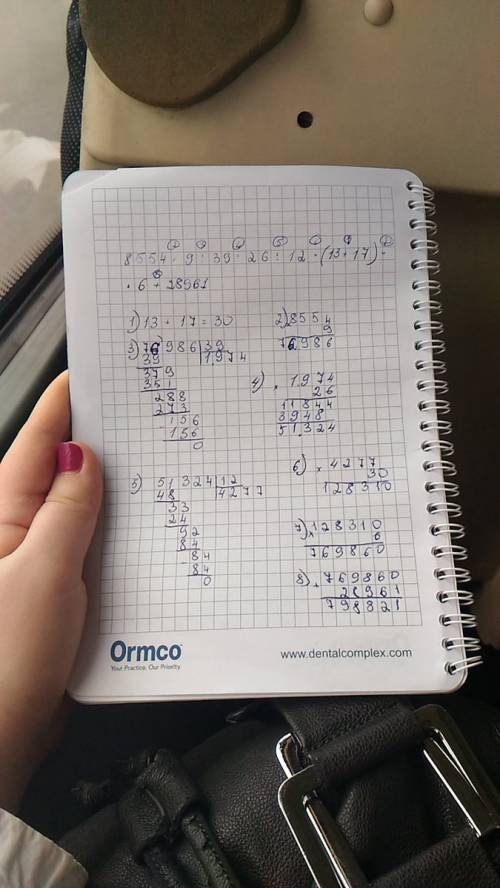 8554 · 9 : 39 · 26 : 12 · (13 + 17) ·
· 6 + 28961
1) 13 + 17 = 30
2) 8554
9
76986
3) 76986 39
39 1974
379
351
288
273
156
156
0
4) × 1974
26
11844
3948
51324
5) 51324 12
48 4277
33
24
92
84
84
84
0
6) × 4277
30
128310
7) × 128310
6
769860
8) + 769860
28961
798821
Ormco
Your Practice. Our Priority.
www.dentalcomplex.com